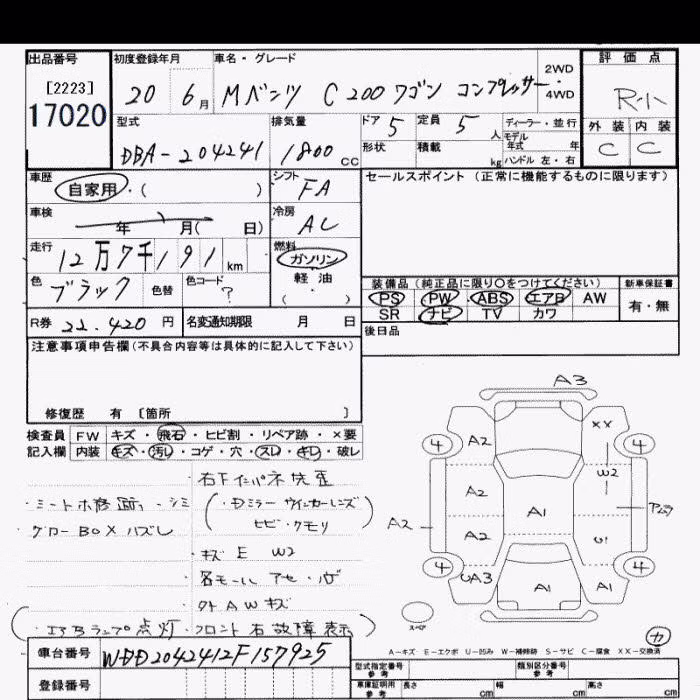 出品番号
[2223]
17020
初度登録年月
20 6月
車名・グレード
Mベンツ C200ワゴン コンプレッサー
2WD
・
4WD
評価点
R-小
外装 内装
C C
型式
DBA-204241
排気量
1800cc
ドア 5
定員 5人
ディーラー・並行
モデル年式 年
形状
積載 kg
ハンドル 左・右
車歴
自家用・( )
シフト
FA
セールスポイント(正常に機能するものに限ります)
車検
年 月( 日)
冷房
AC
走行
12万7千191km
燃料
ガソリン
軽油
( )
色
ブラック
色替
色コード
?
装備品(純正品に限り○をつけてください)
新車保証書
PS PW ABS エアB AW
有・無
SR ナビ TV カワ
R券 22.420円
名変通知期限 月 日
後日品
注意事項申告欄(不具合内容等は具体的に記入して下さい)
修復歴 有〔箇所 〕
検査員 FW キズ・飛石・ヒビ割・リペア跡・×要
記入欄 内装 キズ・汚レ・コゲ・穴・スレ・キレ・破レ
グローBOXハズレ
ヒビ・クモリ
キズ E W2
外AWキズ
エアBランプ点灯・フロント右故障表示
A3
A2
XX
4
4
W2
A2
A1
A2
A2
U1
4
4
UA3
A1
A1
スペア
カ
A-キズ E-エクボ U-凹み W-補修跡 S-サビ C-腐食 XX-交換済
車台番号
WDD2042412F157925
登録番号
型式指定番号
参考
類別区分番号
参考
車庫証明用
参考
長さ cm
幅 cm
高さ cm